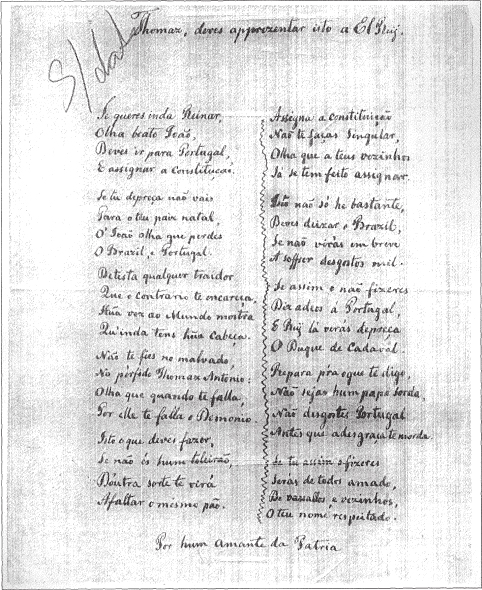 S/dat
Thomaz, deves apprezentar isto a El Rey.
Se queres inda Reinar,
Olha beato João,
Deves ir para Portugal,
E assignar a Constituicao.
Se tu depreça não vais
Para o teu paiz natal,
O' João olha que perdes
O Brazil, e Portugal.
Detista qualquer traidor
Que o contrario te encareça,
Hũa vez ao Mundo mostra
Qu'inda tens hũa Cabeça.
Não te fies no malvado
No perfido Thomaz Antonio:
Olha que quando te falla,
Por elle te falla o Demonio.
Isto o que deves fazer,
Se não és hum toleirão,
D'outra sorte te virá
A faltar o mesmo pão.
Assigna a constituição
Não te faças Singular,
Olha que a teus vezinhos
Já se tem feito assignar.
Isto não só he bastante,
Deves deixar o Brazil,
Se não virás em breve
A soffrer desgostos mil.
Se assim o não fizeres
Diz adeos á Portugal,
E Rey lá verás depreça
O Duque de Cadaval.
Prepara pra o que te digo,
Não sejas hum papa sorda,
Não desgostes Portugal
Antes que a desgraca te morda.
Se tu assim o fizeres
Serás de todos amado,
De vassallos e vezinhos,
O teu nome respeitado.
Por hum amante da Patria